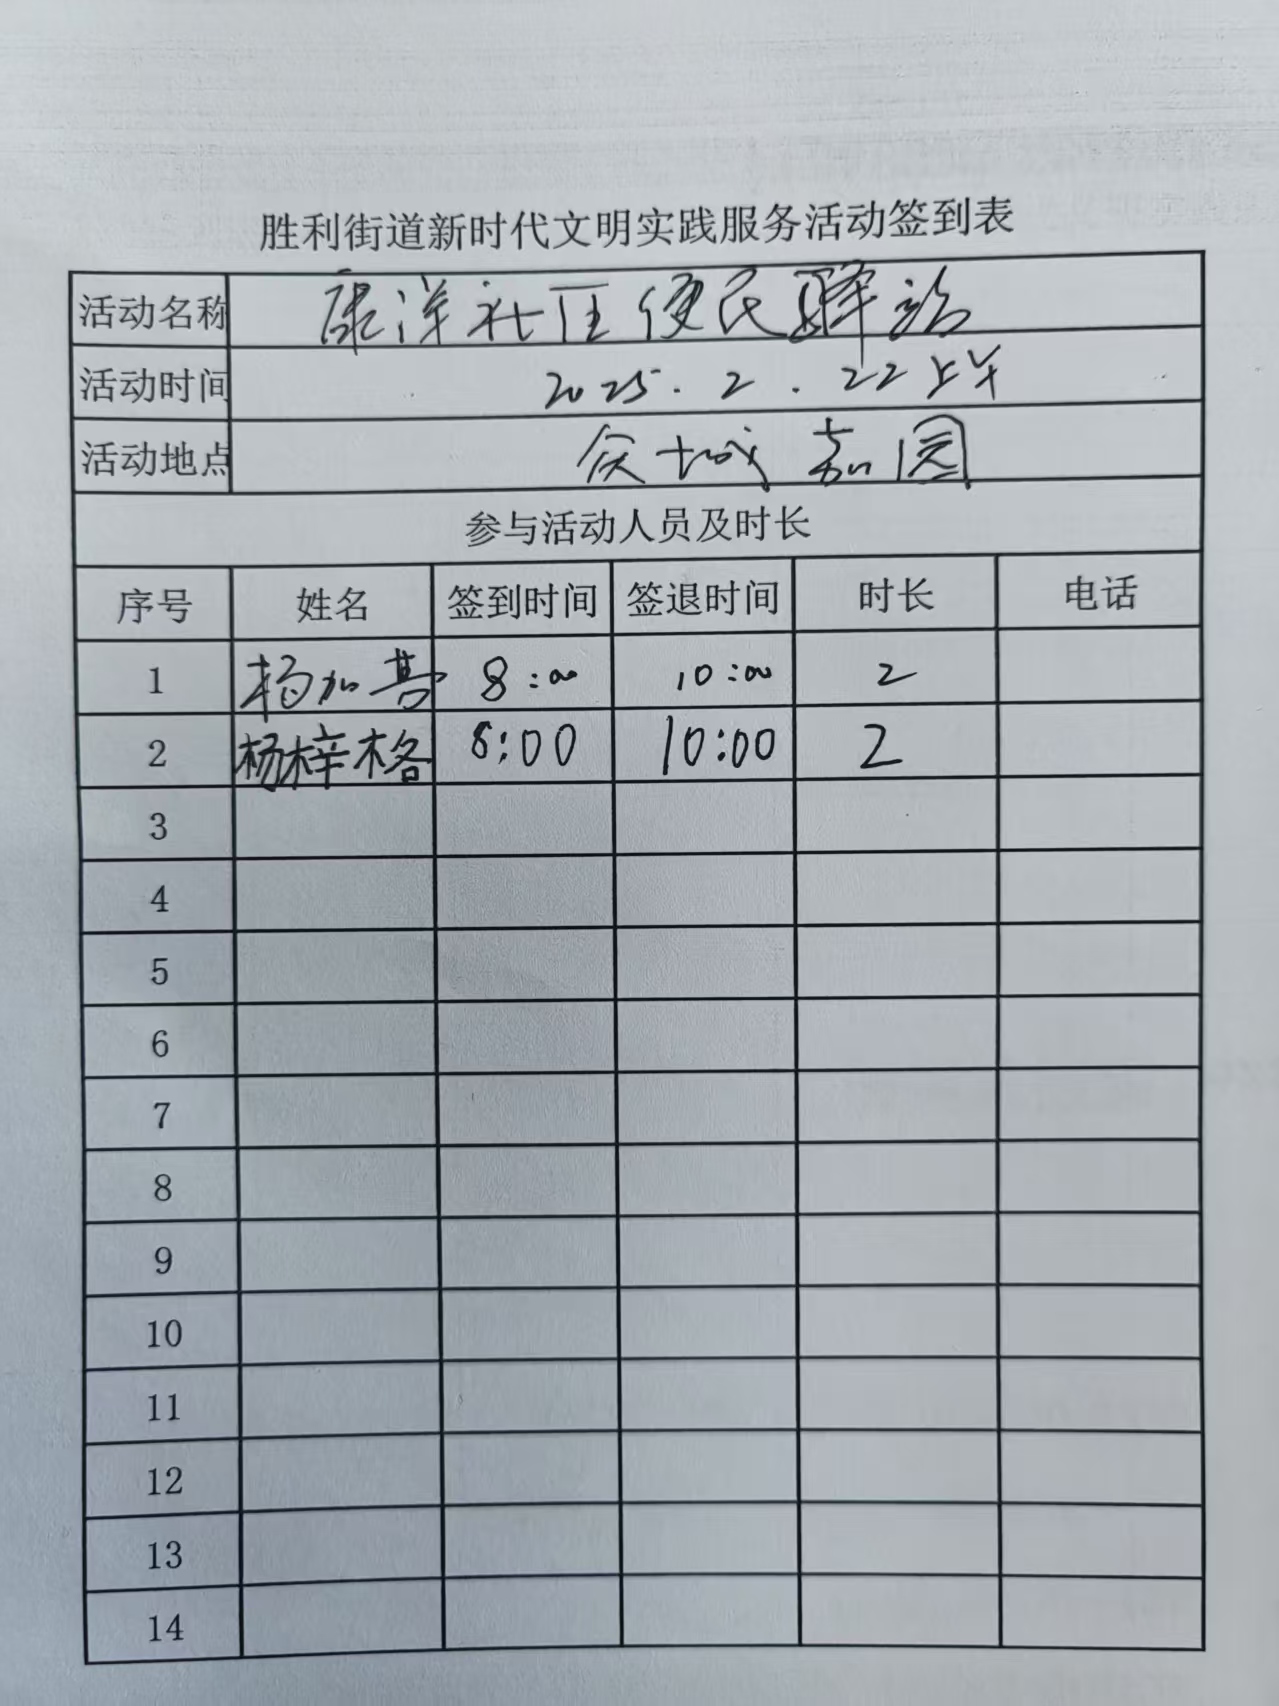 胜利街道新时代文明实践服务活动签到表
活动名称 康洋社区便民驿站
活动时间 2025.2.22上午
活动地点 众城嘉园
参与活动人员及时长
序号 姓名 签到时间 签退时间 时长 电话
1 杨加 8:00 10:00 2
2 杨梓格 8:00 10:00 2
3
4
5
6
7
8
9
10
11
12
13
14